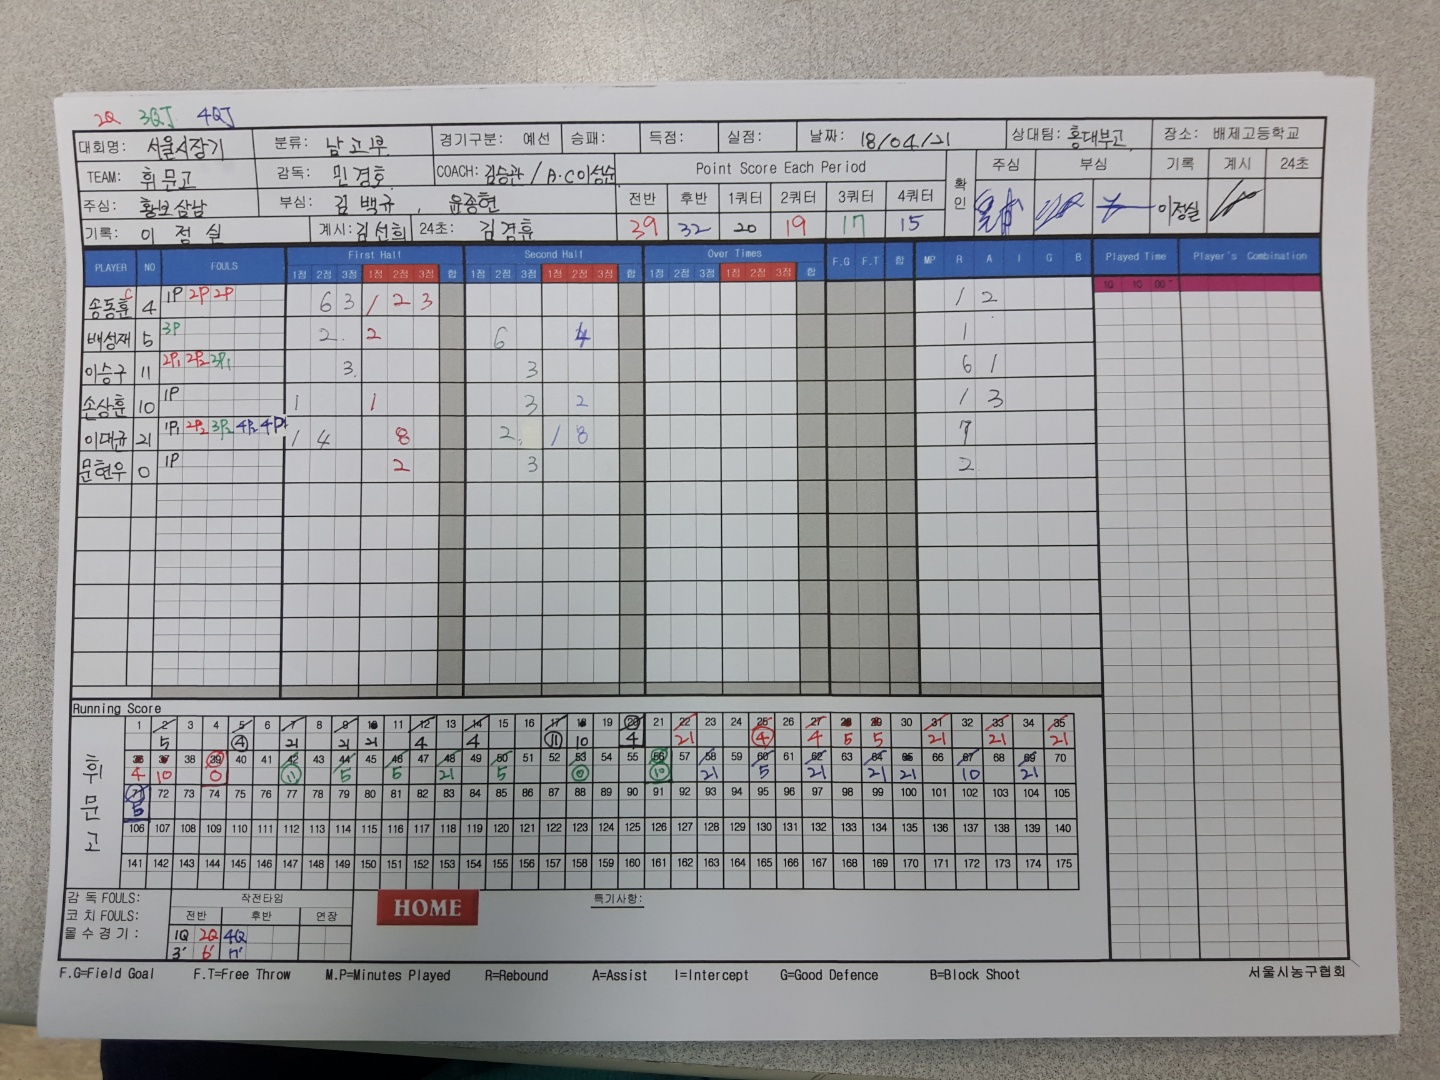 2Q 3QJ 4QJ
대회명: 서울시장기 분류: 남고부 경기구분: 예선 승패: 득점: 실점: 날짜: 18/04/21 상대팀: 홍대부고 장소: 배제고등학교
TEAM: 휘문고 감독: 민경호 COACH: 김승관 / A.C 이성순 Point Score Each Period 확인 주심 부심 기록 계시 24초
주심: 황보삼남 부심: 김백규, 윤종현 전반 후반 1쿼터 2쿼터 3쿼터 4쿼터 이정실
기록: 이정실 계시: 김선희 24초: 김경휴 39 32 20 19 17 15
PLAYER NO FOULS First Half Second Half Over Times F.G F.T 합 MP R A I G B Played Time Player's Combination
1점 2점 3점 1점 2점 3점 합 1점 2점 3점 1점 2점 3점 합 1점 2점 3점 1점 2점 3점 합
10 10 00
송동훈 C 4 1P 2P 2P 6 3 1 2 3 1 2
배성재 5 3P 2 2 6 4 1
이승구 11 2P1 2P2 3P1 3 3 6 1
손상훈 10 1P 1 1 3 2 1 3
이대균 21 1P1 2P2 3P2 4P2 4P1 1 4 8 2 1 8 7
문현우 0 1P 2 3 2
Running Score
휘문고
1 2 3 4 5 6 7 8 9 10 11 12 13 14 15 16 17 18 19 20 21 22 23 24 25 26 27 28 29 30 31 32 33 34 35
5 4 21 21 21 4 4 11 10 4 21 4 4 5 5 21 21 21
36 37 38 39 40 41 42 43 44 45 46 47 48 49 50 51 52 53 54 55 56 57 58 59 60 61 62 63 64 65 66 67 68 69 70
4 10 0 11 5 5 21 5 0 10 21 5 21 21 21 10 21
71 72 73 74 75 76 77 78 79 80 81 82 83 84 85 86 87 88 89 90 91 92 93 94 95 96 97 98 99 100 101 102 103 104 105
5
106 107 108 109 110 111 112 113 114 115 116 117 118 119 120 121 122 123 124 125 126 127 128 129 130 131 132 133 134 135 136 137 138 139 140
141 142 143 144 145 146 147 148 149 150 151 152 153 154 155 156 157 158 159 160 161 162 163 164 165 166 167 168 169 170 171 172 173 174 175
감독 FOULS: 작전타임 HOME 특기사항:
코치 FOULS: 전반 후반 연장
몰수경기: 1Q 2Q 4Q
3' 6' 7'
F.G=Field Goal F.T=Free Throw M.P=Minutes Played R=Rebound A=Assist I=Intercept G=Good Defence B=Block Shoot 서울시농구협회